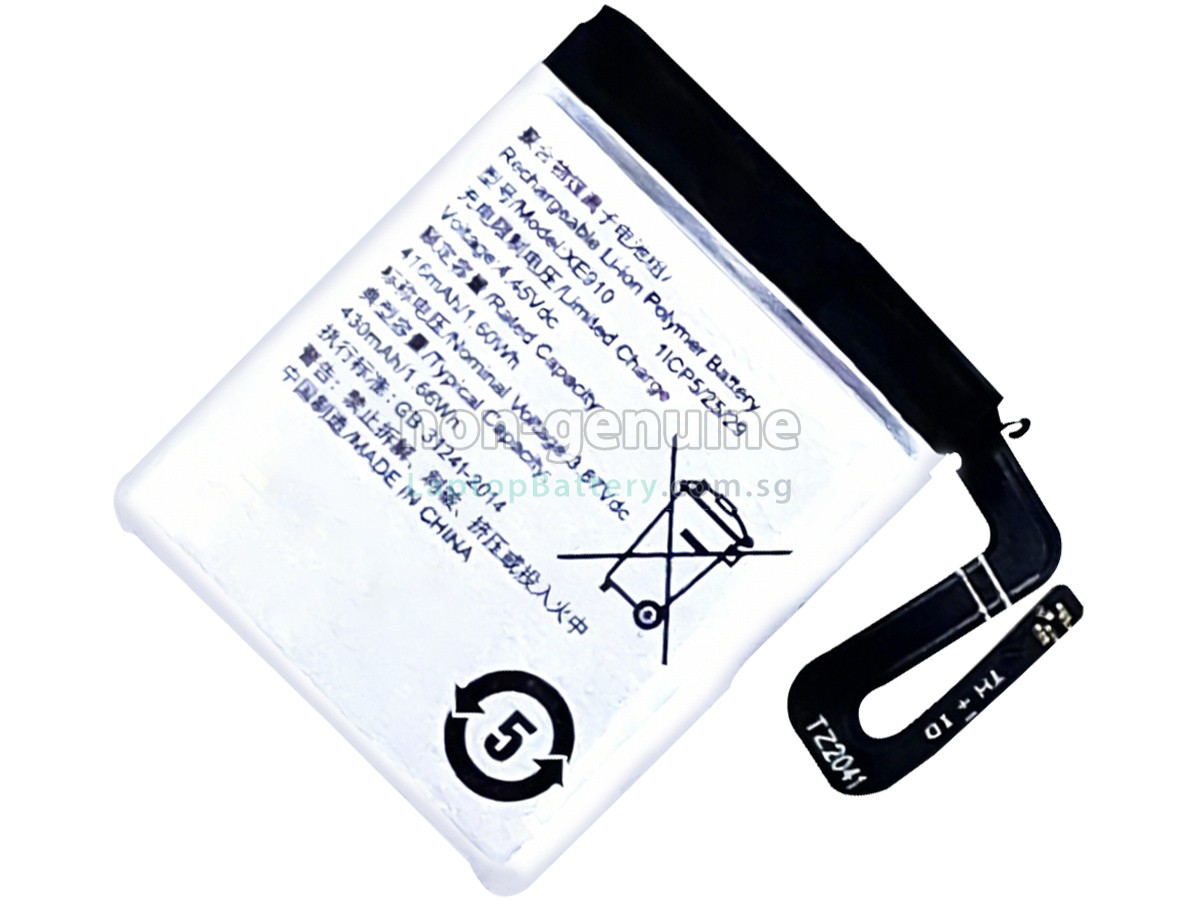 聚合物锂离子电池组/
Rechargeable Li-ion Polymer Battery
型号/Model:XE910 1ICP5/25/29
充电限制电压/Limited Charge
Voltage:4.45Vdc
额定容量/Rated Capacity
416mAh/1.60Wh
标称电压/Nominal Voltage 3.87Vdc
典型容量/Typical Capacity
430mAh/1.66Wh
执行标准: GB 31241-2014
警告: 禁止拆解、 挤压或投入火中
中国制造/MADE IN CHINA
non-genuine
LaptopBattery.com.sg
5
TH + - ID
TZ2041